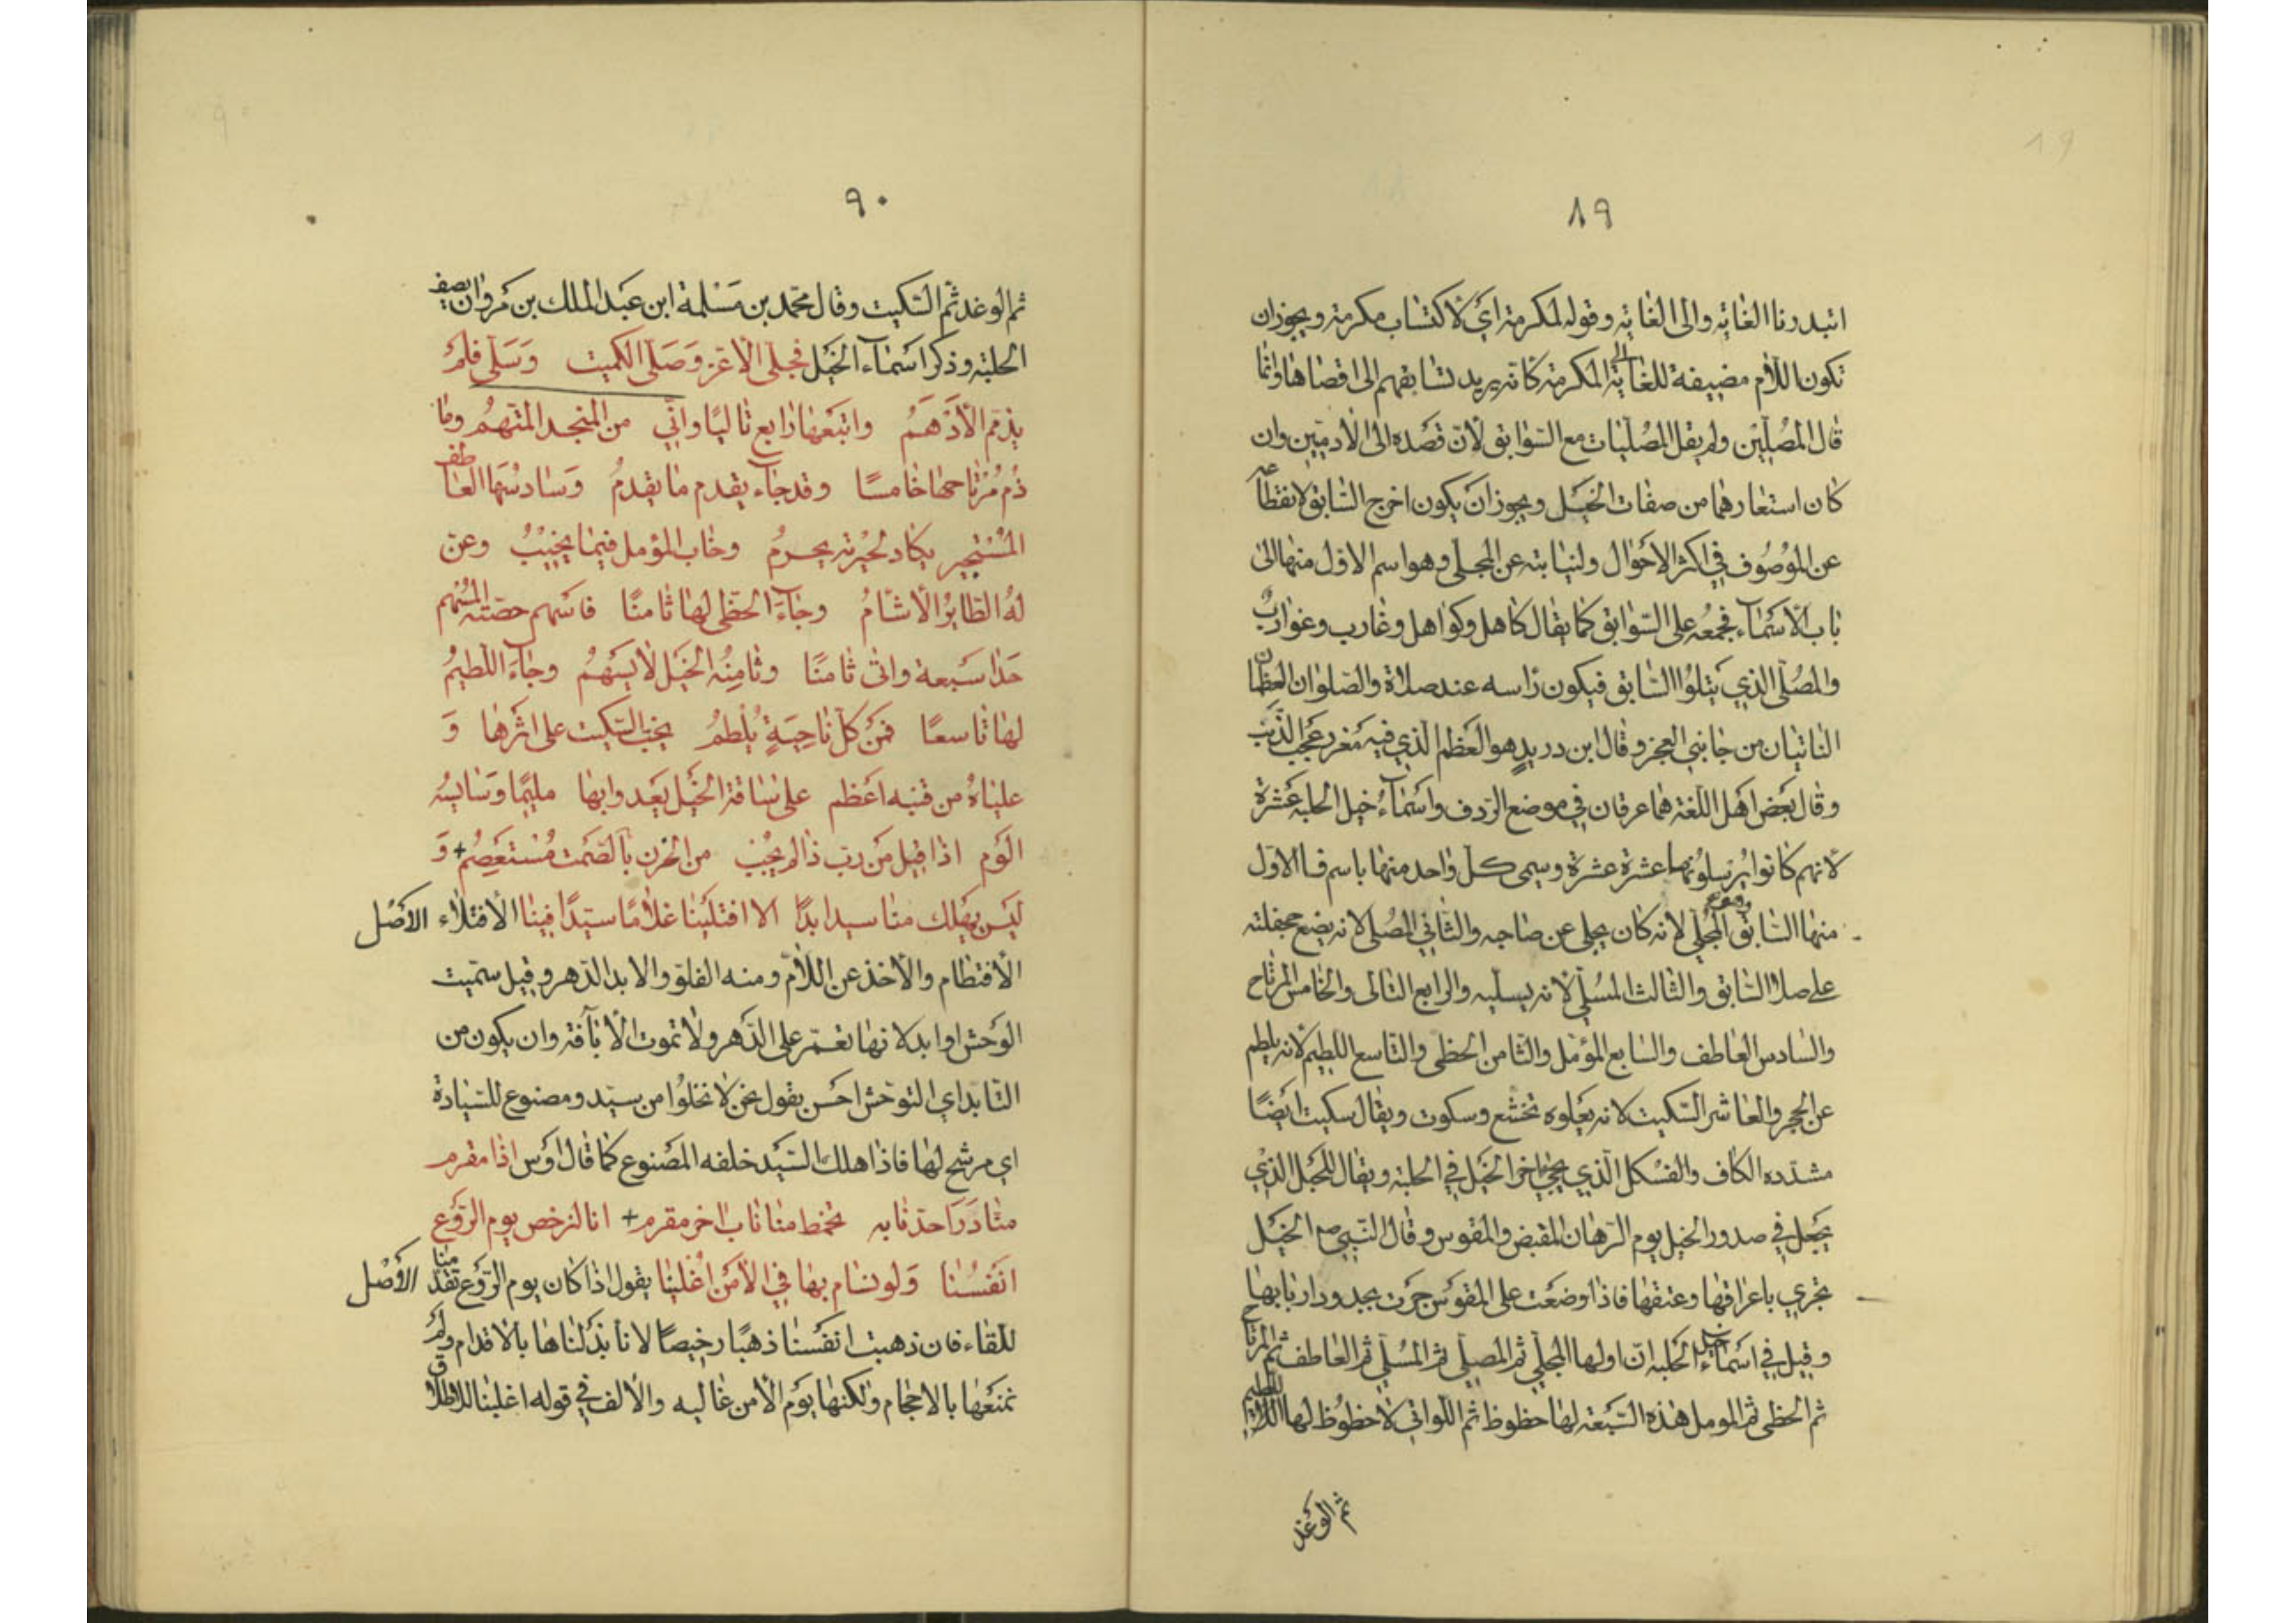 ٨٩
ابتدرنا الغاية والى الغاية وقوله لمكرمة اي لاكتساب مكرمة ويجوز ان
تكون اللام مضيفة للغاية الى المكرمة كانه يريد تسابقهم الى اقصاها وانما
قال المصلين ولم يقل المصليات مع السوابق لان قصده الى الآدميين وان
كان استعارهما من صفات الخيل ويجوز ان يكون اخرج السابق لانقطاعه
عن الموصوف في اكثر الاحوال ولنيابته عن المجلي وهو اسم الاول منها الى
باب الاسماء فجمعه على السوابق كما يقال كاهل وكواهل وغارب وغوارب
والمصلي الذي يتلوا السابق فيكون راسه عند صلاه والصلوان العظمان
الناتيان من جانبي العجز وقال ابن دريد هو العظم الذي فيه مغرز عجب الذنب
وقال بعض اهل اللغة هما عرقان في موضع الردف واسماء خيل الحلبة عشرة
لانهم كانوا يرسلونها عشرة عشرة وسمى كل واحد منها باسم فالاول
منها السابق وهو المجلي لانه كان يجلي عن صاحبه والثاني المصلي لانه يضع جحفلته
على صلا السابق والثالث المسلي لانه يسليه والرابع التالى والخامس المرتاح
والسادس العاطف والسابع المؤمل والثامن الحظي والتاسع اللطيم لانه يلطم
عن الحجر والعاشر السكيت لانه يعلوه تخشع وسكوت ويقال سكيت ايضا
مشدده الكاف والفسكل الذي يجئ آخر الخيل في الحلبة ويقال للحبل الذي
يجعل في صدور الخيل يوم الرهان المقبض والمقوس وقال النبي صع الخيل
تجري باعراقها وعتقها فاذا وضعت على المقوس جرت بجدود اربابها
وقيل في اسماء خيل الحلبة ان اولها المجلي ثم المصلي ثم المسلي ثم العاطف ثم المرتاح
ثم الحظي ثم المومل هذه السبعة لها حظوظ ثم اللواتي لا حظوظ لها اللطيم
ثم الوغد
٩٠
ثم الوغد ثم السكيت وقال محمد بن مسلمة ابن عبد الملك بن مروان يصف
الحلبة وذكر اسماء الخيل فجلى الاغر وصلى الكميت وسلى فلم
يذمم الادهم واتبعها رابع تاليا واني من المنجد المتهم وما
ذم مرتاحها خامسا وقد جاء يقدم ما يقدم وسادسها العاطف
المستجير يكاد لحيرته يحرم وخاب المؤمل فيما يخيب وعن
له الطاير الاشام وجاء الحظي لها ثامنا فاسهم حصته المسهم
حدا سبعة واتى ثامنا وثامنه الخيل لا يسهم وجاء اللطيم
لها تاسعا فمن كل ناحية يلطم يخب السكيت على اثرها و
علياه من قنبه اعظم على ساقة الخيل يعدوا بها مليما وسايسه
الوم اذا قيل من رب ذا لم يجب من الحزن بالصمت مستعصم + و
ليس يهلك منا سيد ابدا الا افتلينا غلاما سيدا فينا الافتلاء الاصل
الافتطام والاخذ عن اللام ومنه الفلو والابد الدهر وقيل سميت
الوحش اوابد لانها تعمر على الدهر ولا تموت الا بآفة وان يكون من
التابد اي التوحش احسن يقول نحن لا نخلوا من سيد ومصنوع للسيادة
اي مرشح لها فاذا هلك السيد خلفه المصنوع كما قال اوس اذا مقرم
منا ذرا حد نابه تخمط منا ناب اخر مقرم + انا لنرخص يوم الروع
انفسنا ولو نسام بها في الامن اغلينا يقول اذا كان يوم الروع تقدمنا الاصل
للقاء فان ذهبت انفسنا ذهبا رخيصا لانا بذلناها بالاقدام ولم
نمنعها بالاحجام ولكنها يوم الامن غاليه والالف في قوله اغلينا للاطلاق